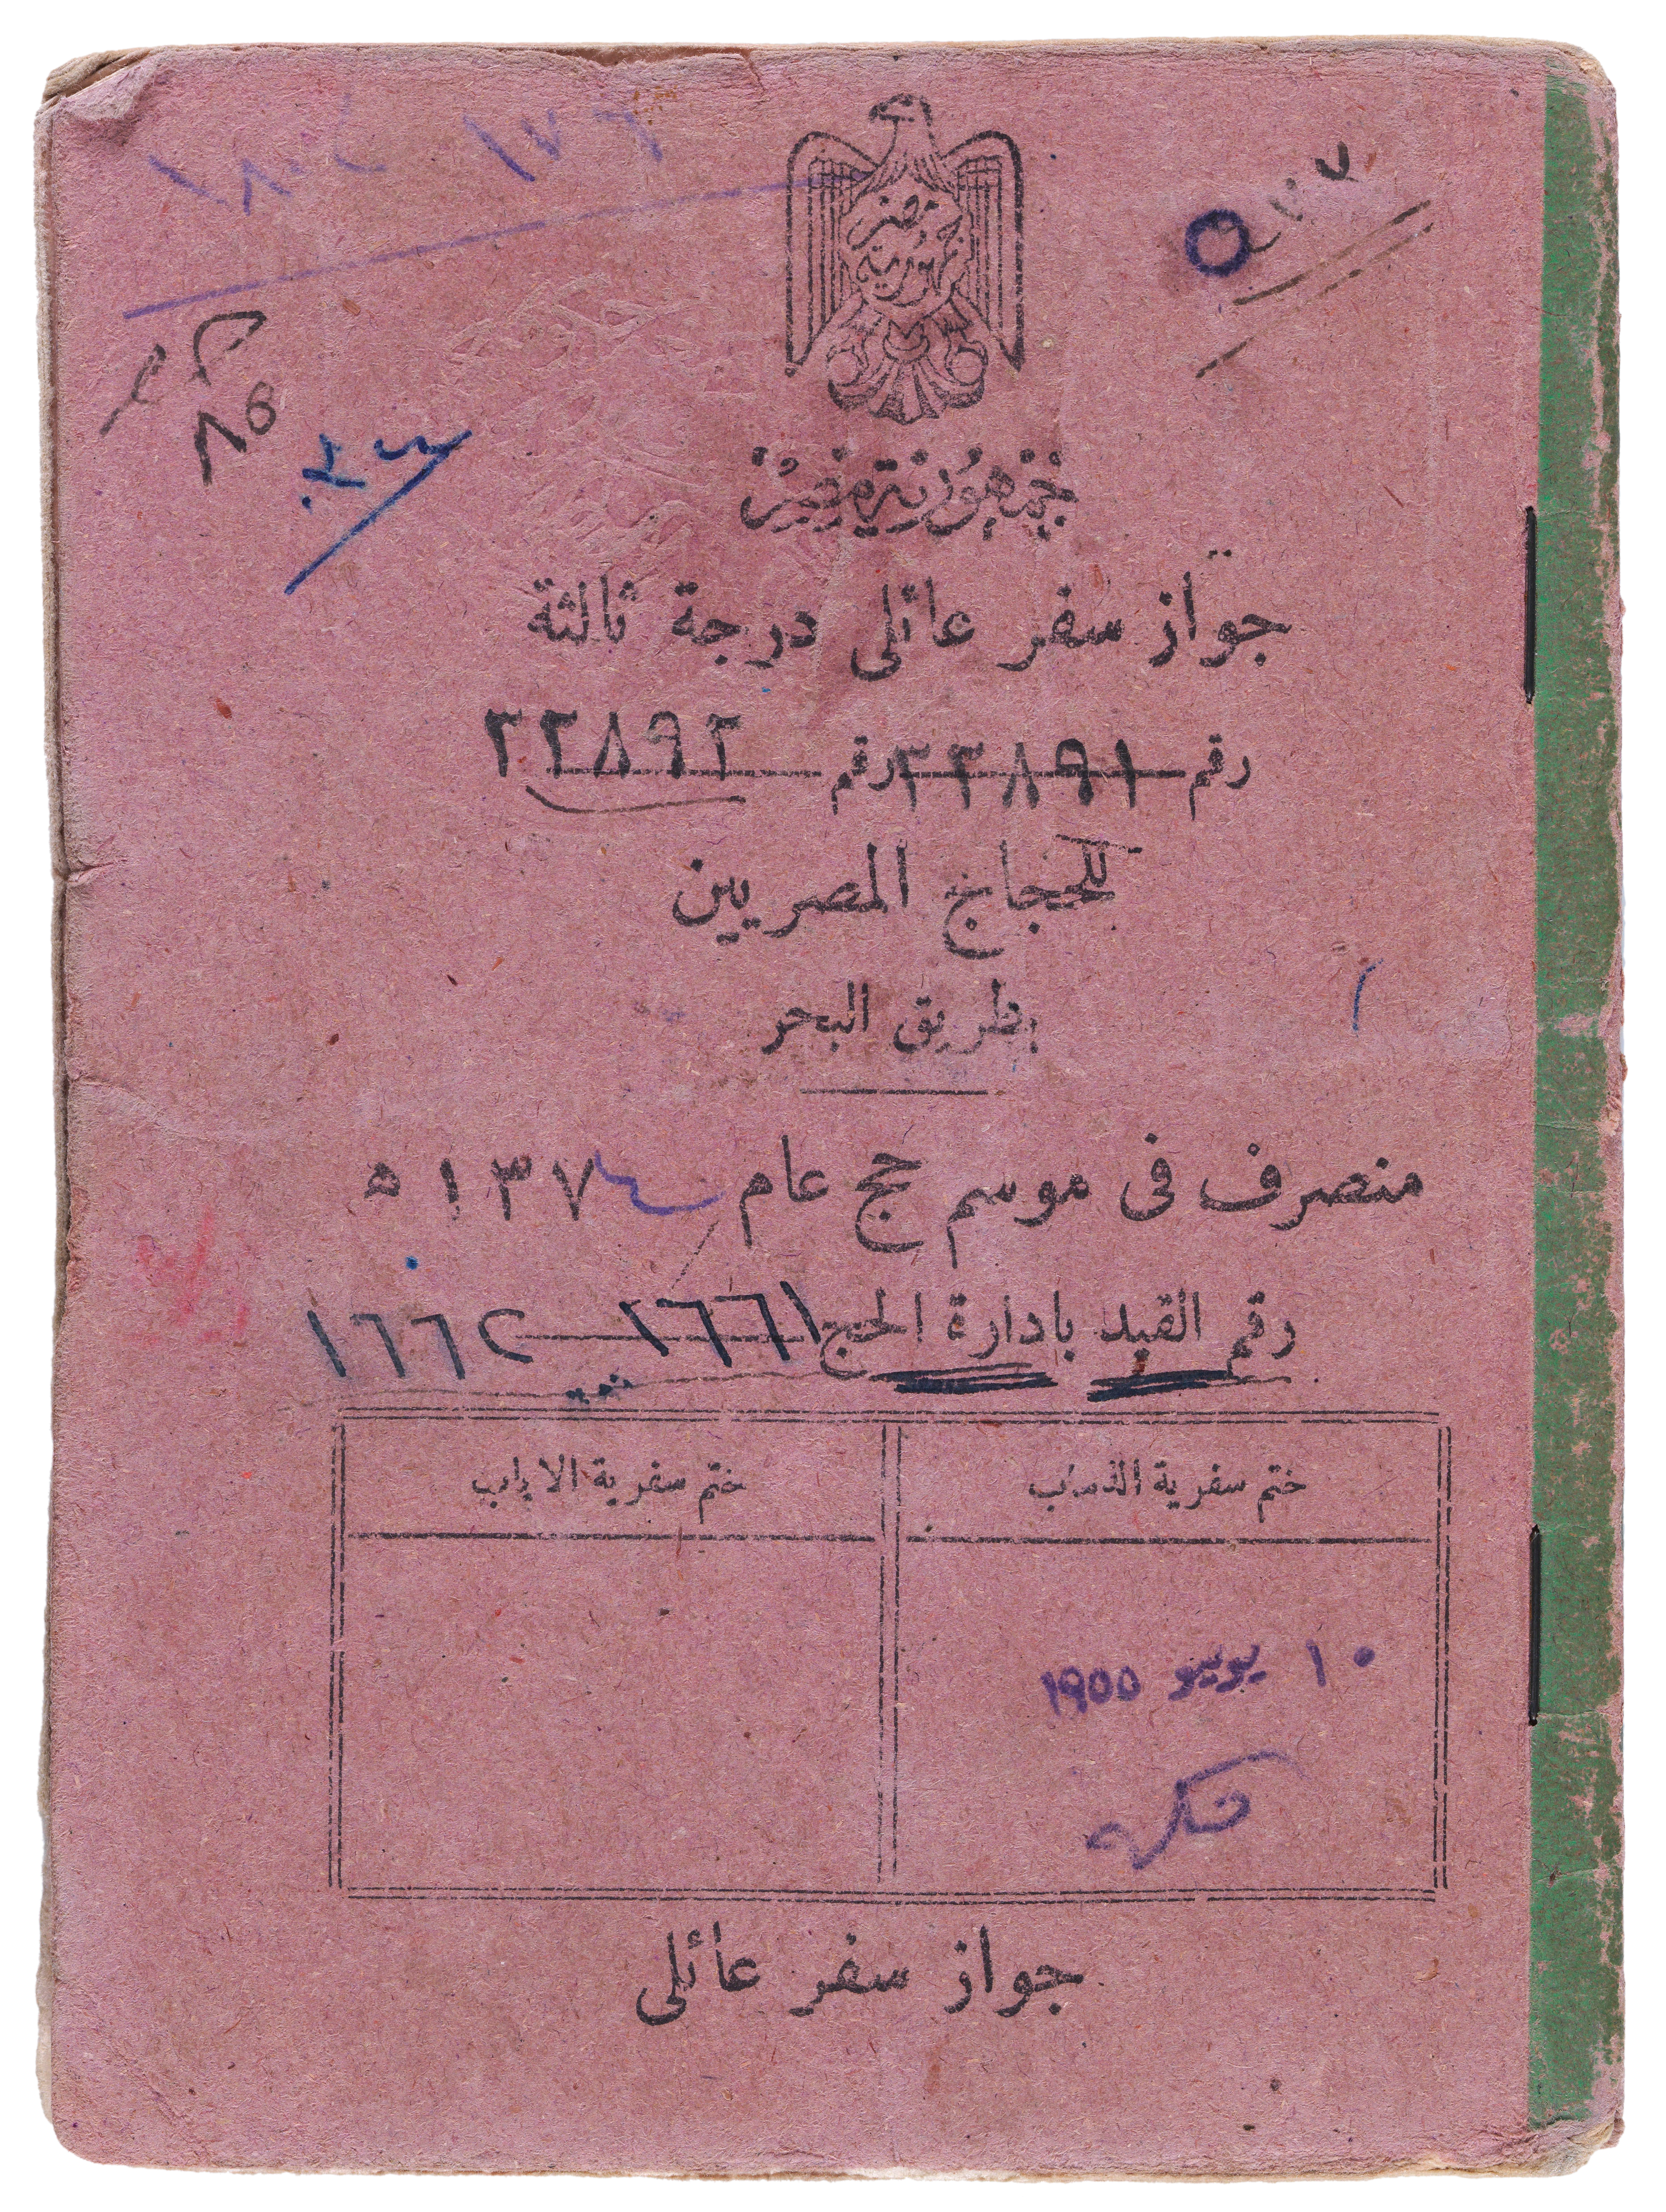 جمهورية مصر
جمهورية مصر
جواز سفر عائلى درجة ثالثة
رقم ٢٢٨٩١ رقم ٢٢٨٩٢
للحجاج المصريين
بطريق البحر
منصرف فى موسم حج عام ١٣٧٤ ه
رقم القيد بادارة الحج ١٦٦١ ١٦٦٢
ختم سفرية الذهاب
ختم سفرية الاياب
١٠ يونيو ١٩٥٥
جواز سفر عائلى